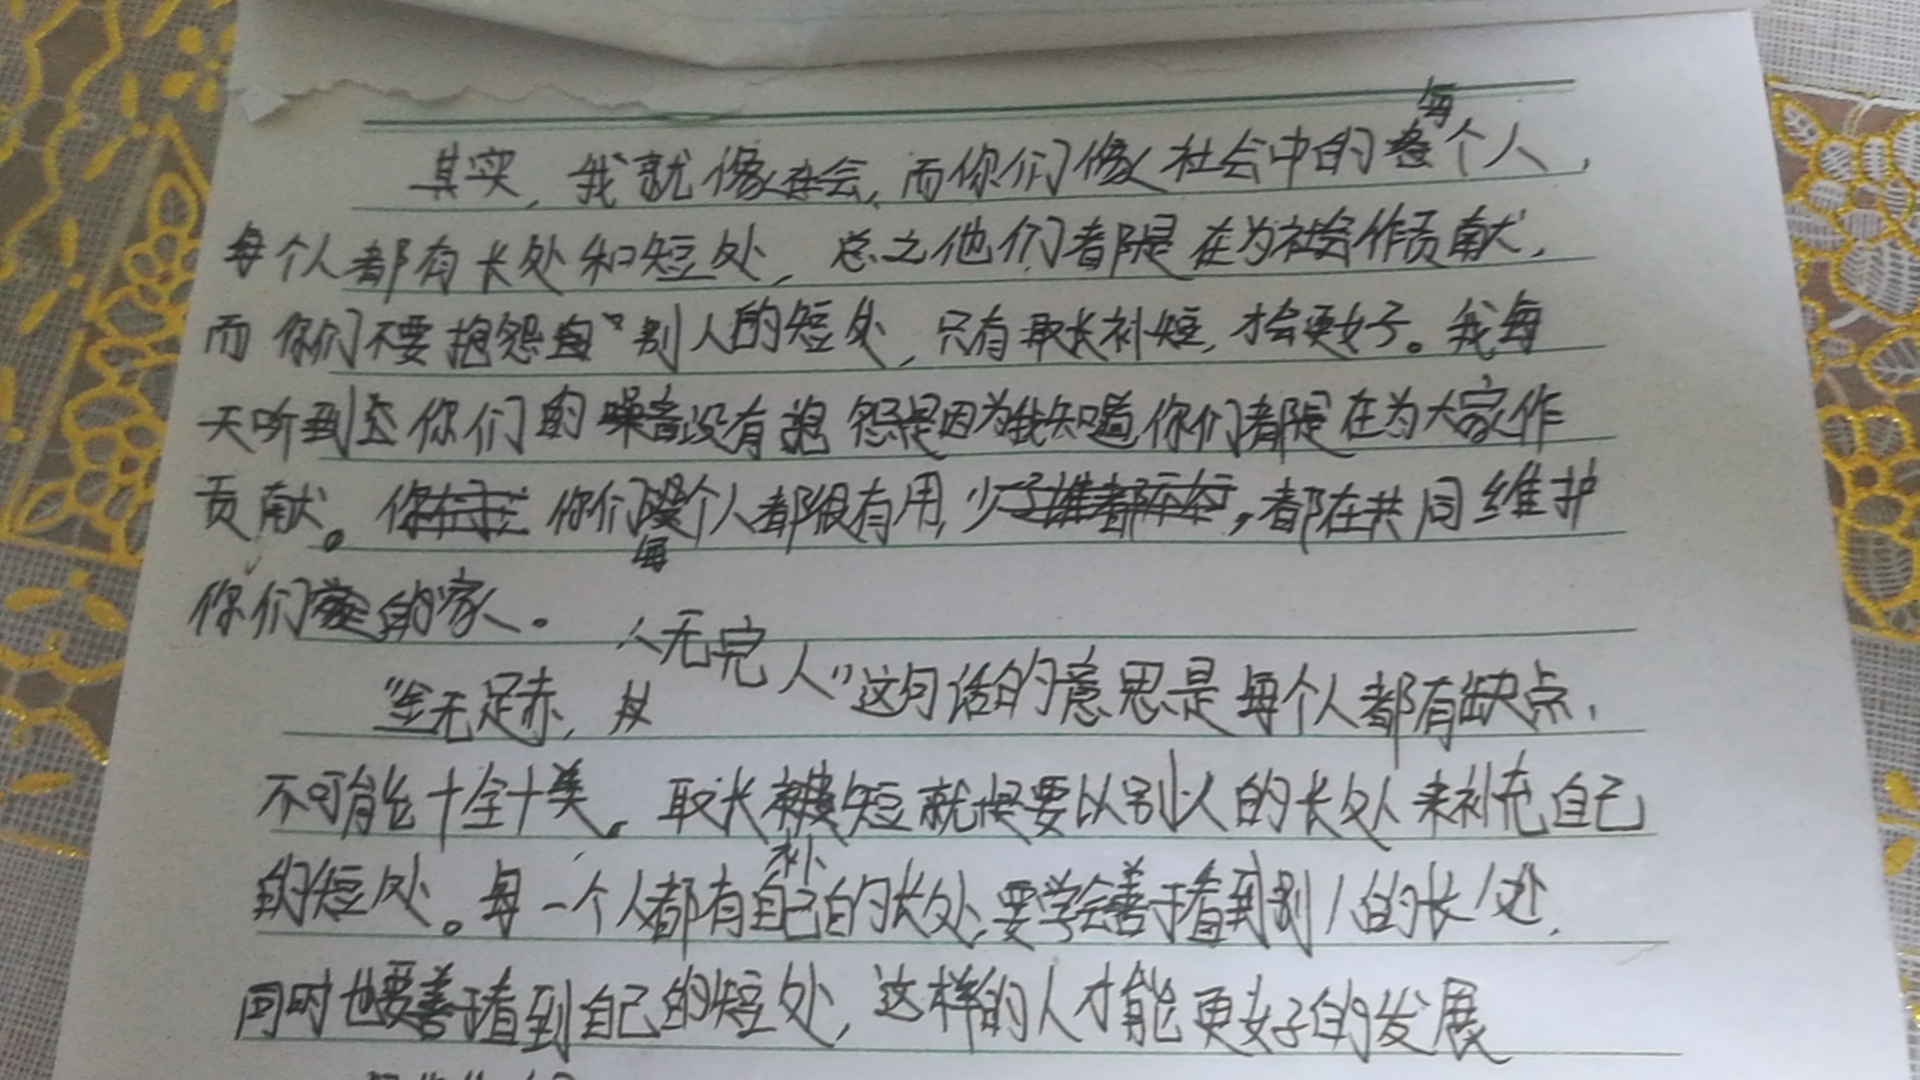 其实，我就像社会，而你们像社会中的每个人，
每个人都有长处和短处，总之他们都是在为社会作贡献，
而你们不要抱怨别人的短处，只有取长补短，才会更好。我每
天听到你们的噪音没有抱怨是因为我知道你们都是在为大家作
贡献。你们每个人都很有用，都在共同维护
你们的家。
“金无足赤，人无完人”这句话的意思是每个人都有缺点，
不可能十全十美。取长补短就是要以别人的长处来补充自己
的短处。每一个人都有自己的长处，要学会善于看到别人的长处，
同时也要善于看到自己的短处，这样的人才能更好的发展